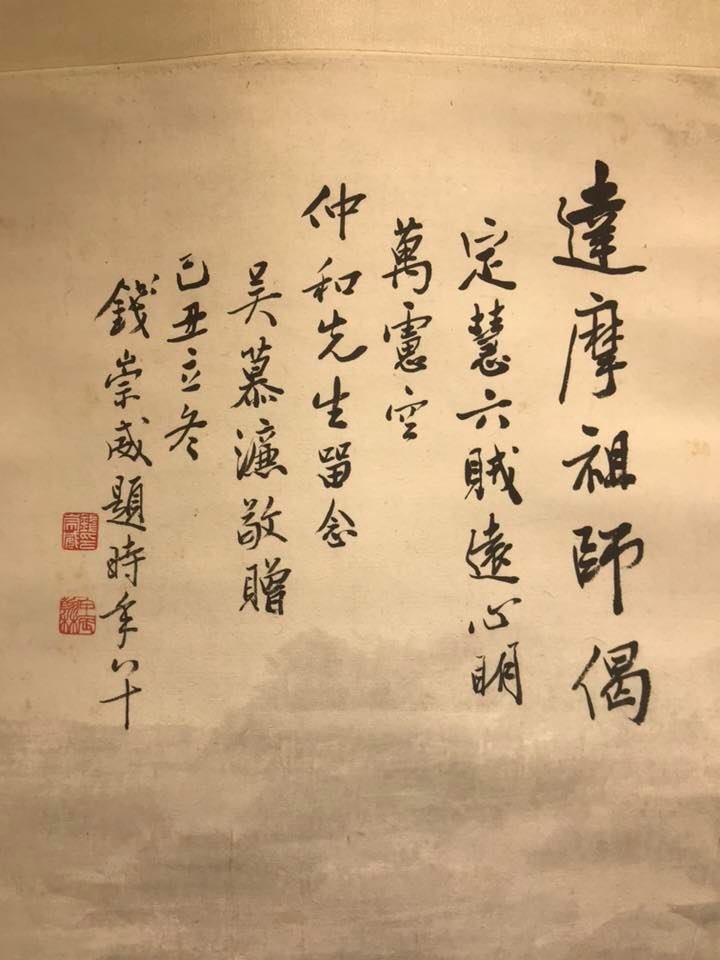 達摩祖師偈
定慧六賊遠心明
萬慮空
仲和先生留念
吳慕濂敬贈
己丑立冬
錢崇威題時年八十